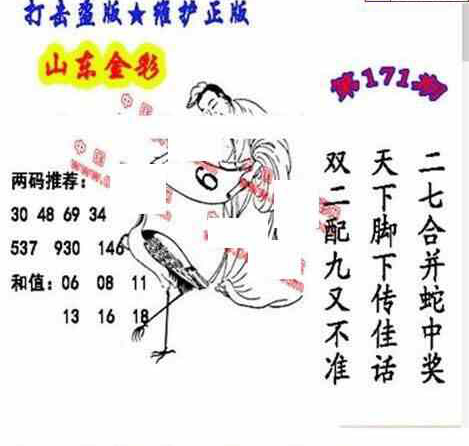 打击盗版★维护正版
山东金彩
第171期
两码推荐：
30 48 69 34
537 930 146
和值：06 08 11
13 16 18
6
二七合并蛇中奖
天下脚下传佳话
双二配九又不准